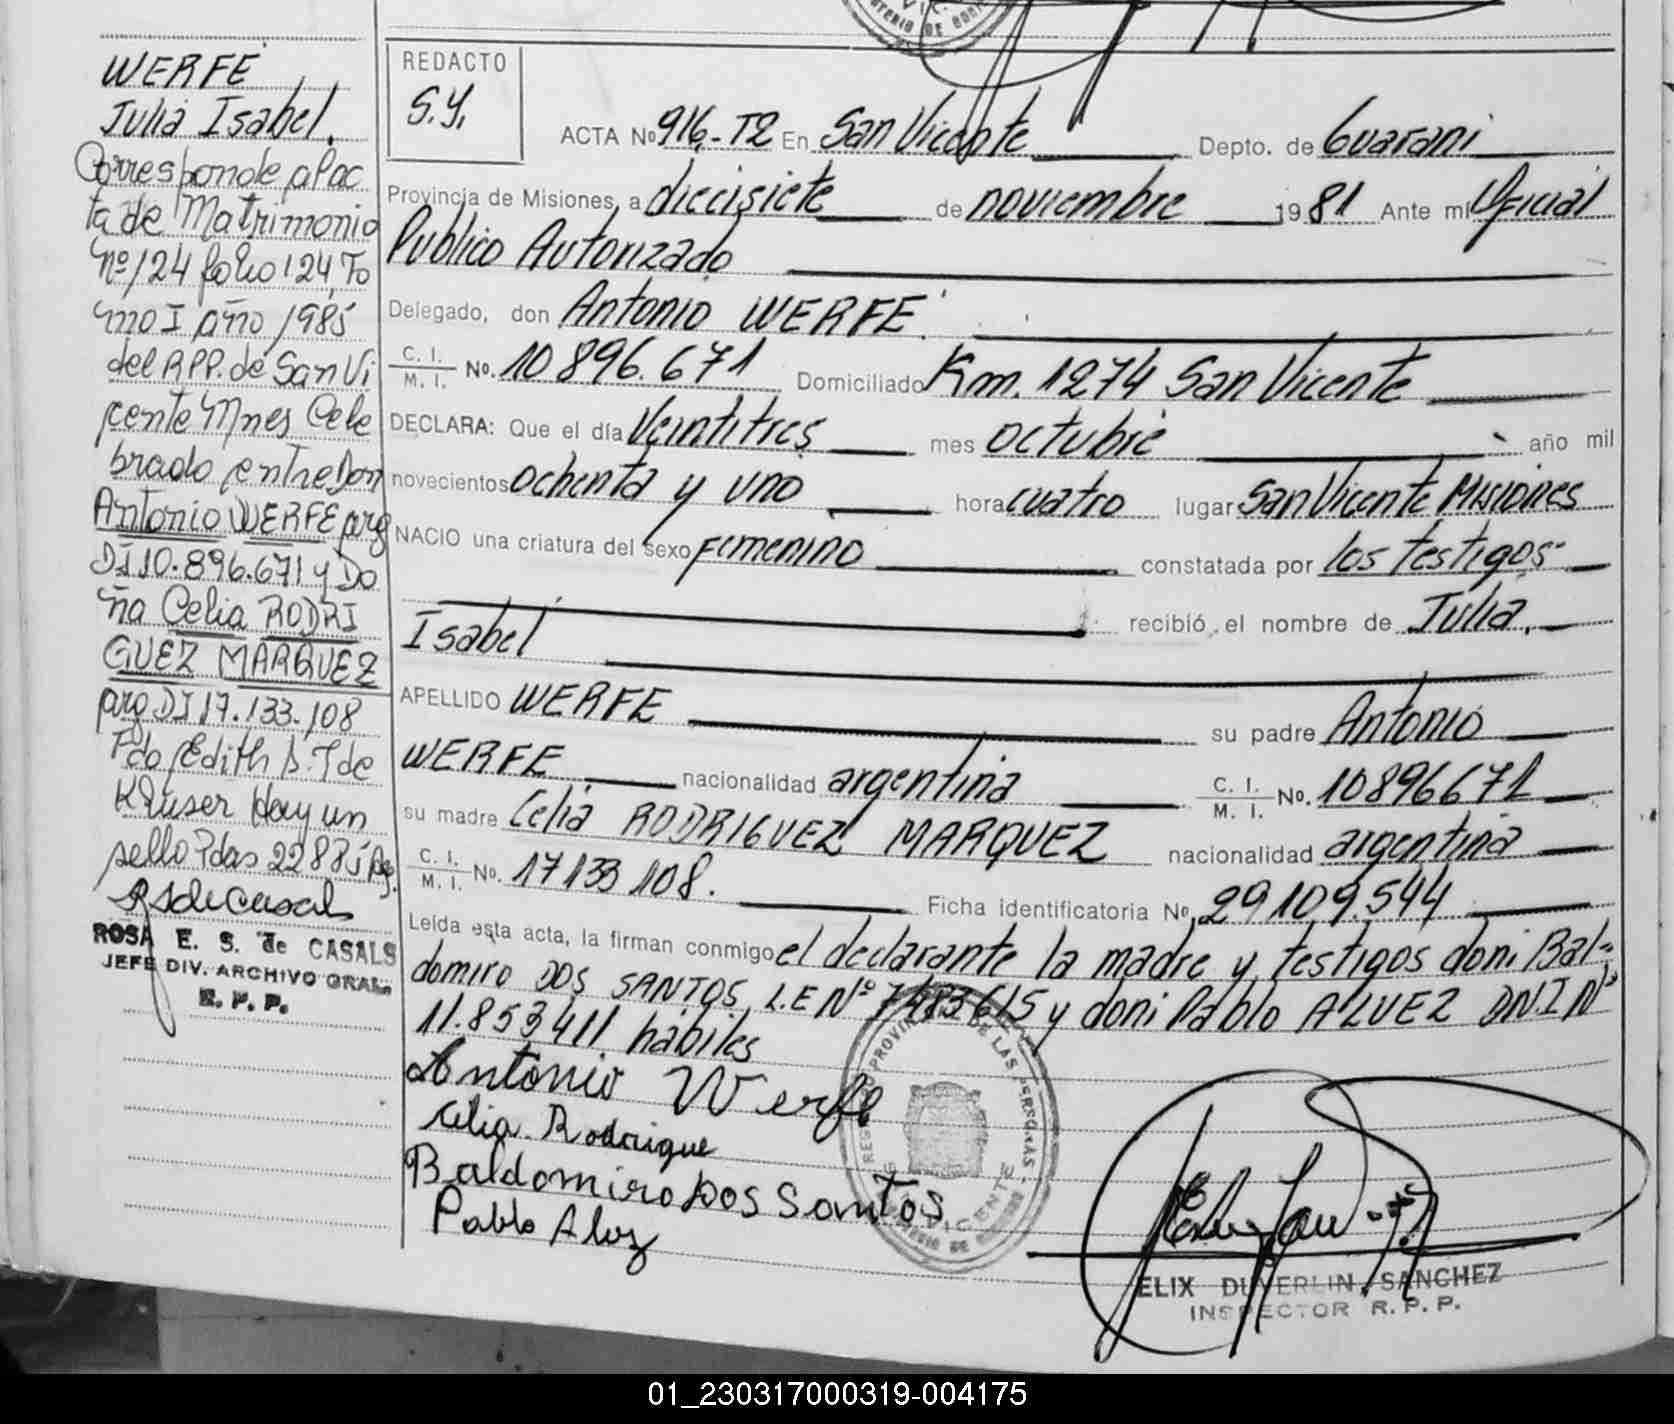 WERFE
Julia Isabel.
Corresponde al ac
ta de Matrimonio
Nº 124 folio 124, To
mo I año 1985
del RPP. de San Vi
cente Mnes Cele
brado entre Don
Antonio WERFE arg
DI 10.896.671 y Do
ña Celia RODRI
GUEZ MARQUEZ
arg DI 17.133.108
Fdo Edith S. T de
Kruser Hay un
sello Pdas 22 8 85
RSdeCasals
ROSA E. S. de CASALS
JEFE DIV. ARCHIVO GRAL.
R. P. P.
REDACTO
S.Y.
ACTA Nº 916-T2 En San Vicente Depto. de Guarani
Provincia de Misiones, a diecisiete de noviembre 1981 Ante mí Oficial
Publico Autorizado
Delegado, don Antonio WERFE
C. I.
M. I. No. 10 896.671 Domiciliado Km. 1274 San Vicente
DECLARA: Que el día Veintitres mes octubre año mil
novecientos ochenta y uno hora cuatro lugar San Vicente Misiones
NACIO una criatura del sexo femenino constatada por los testigos
recibió el nombre de Julia
Isabel
APELLIDO WERFE su padre Antonio
WERFE nacionalidad argentina C. I.
M. I. No. 10896671
su madre Celia RODRIGUEZ MARQUEZ nacionalidad argentina
C. I.
M. I. No. 17133 108. Ficha identificatoria No. 29109.544
Leída esta acta, la firman conmigo el declarante la madre y testigos don: Bal-
domiro DOS SANTOS L.E Nº 7483615 y don: Pablo ALVEZ DN.I Nº
11.853411 habiles
Antonio Werfe
Celia Rodrigue
Baldomiro Dos Santos
Pablo Alvz
REGISTRO PROVINCIAL DE LAS PERSONAS
SAN VICENTE
ELIX DUVERLIN SANCHEZ
INSPECTOR R. P. P.
01_230317000319-004175